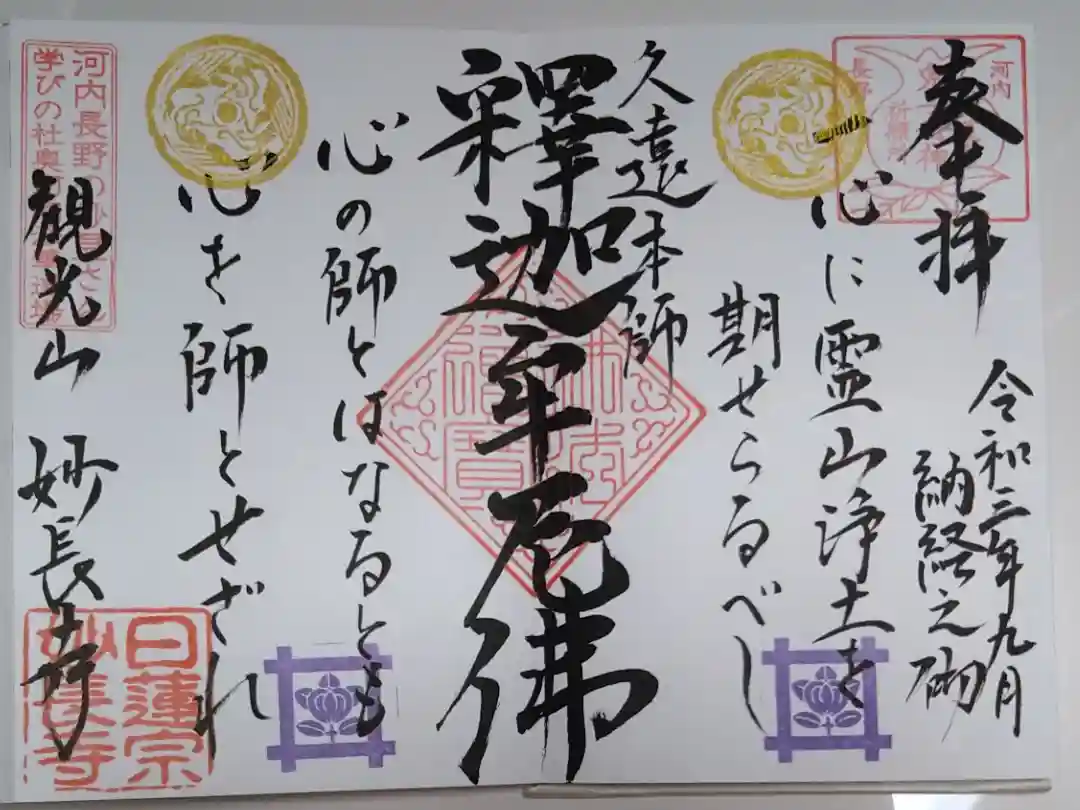 奉拝
令和三年九月
納経之砌
一心に霊山浄土を
期せらるべし
久遠本師
釋迦牟尼佛
心の師とはなるとも
心を師とせざれ
観光山 妙長寺
河内
長野
河内長野の
学びの社奥
日蓮宗
妙長寺